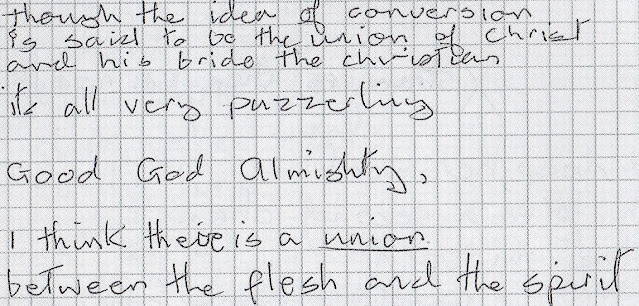 though the idea of conversion
is said to be the union of Christ
and his bride the christian
its all very puzzerling
Good God Almighty,
I think there is a union
between the flesh and the spirit